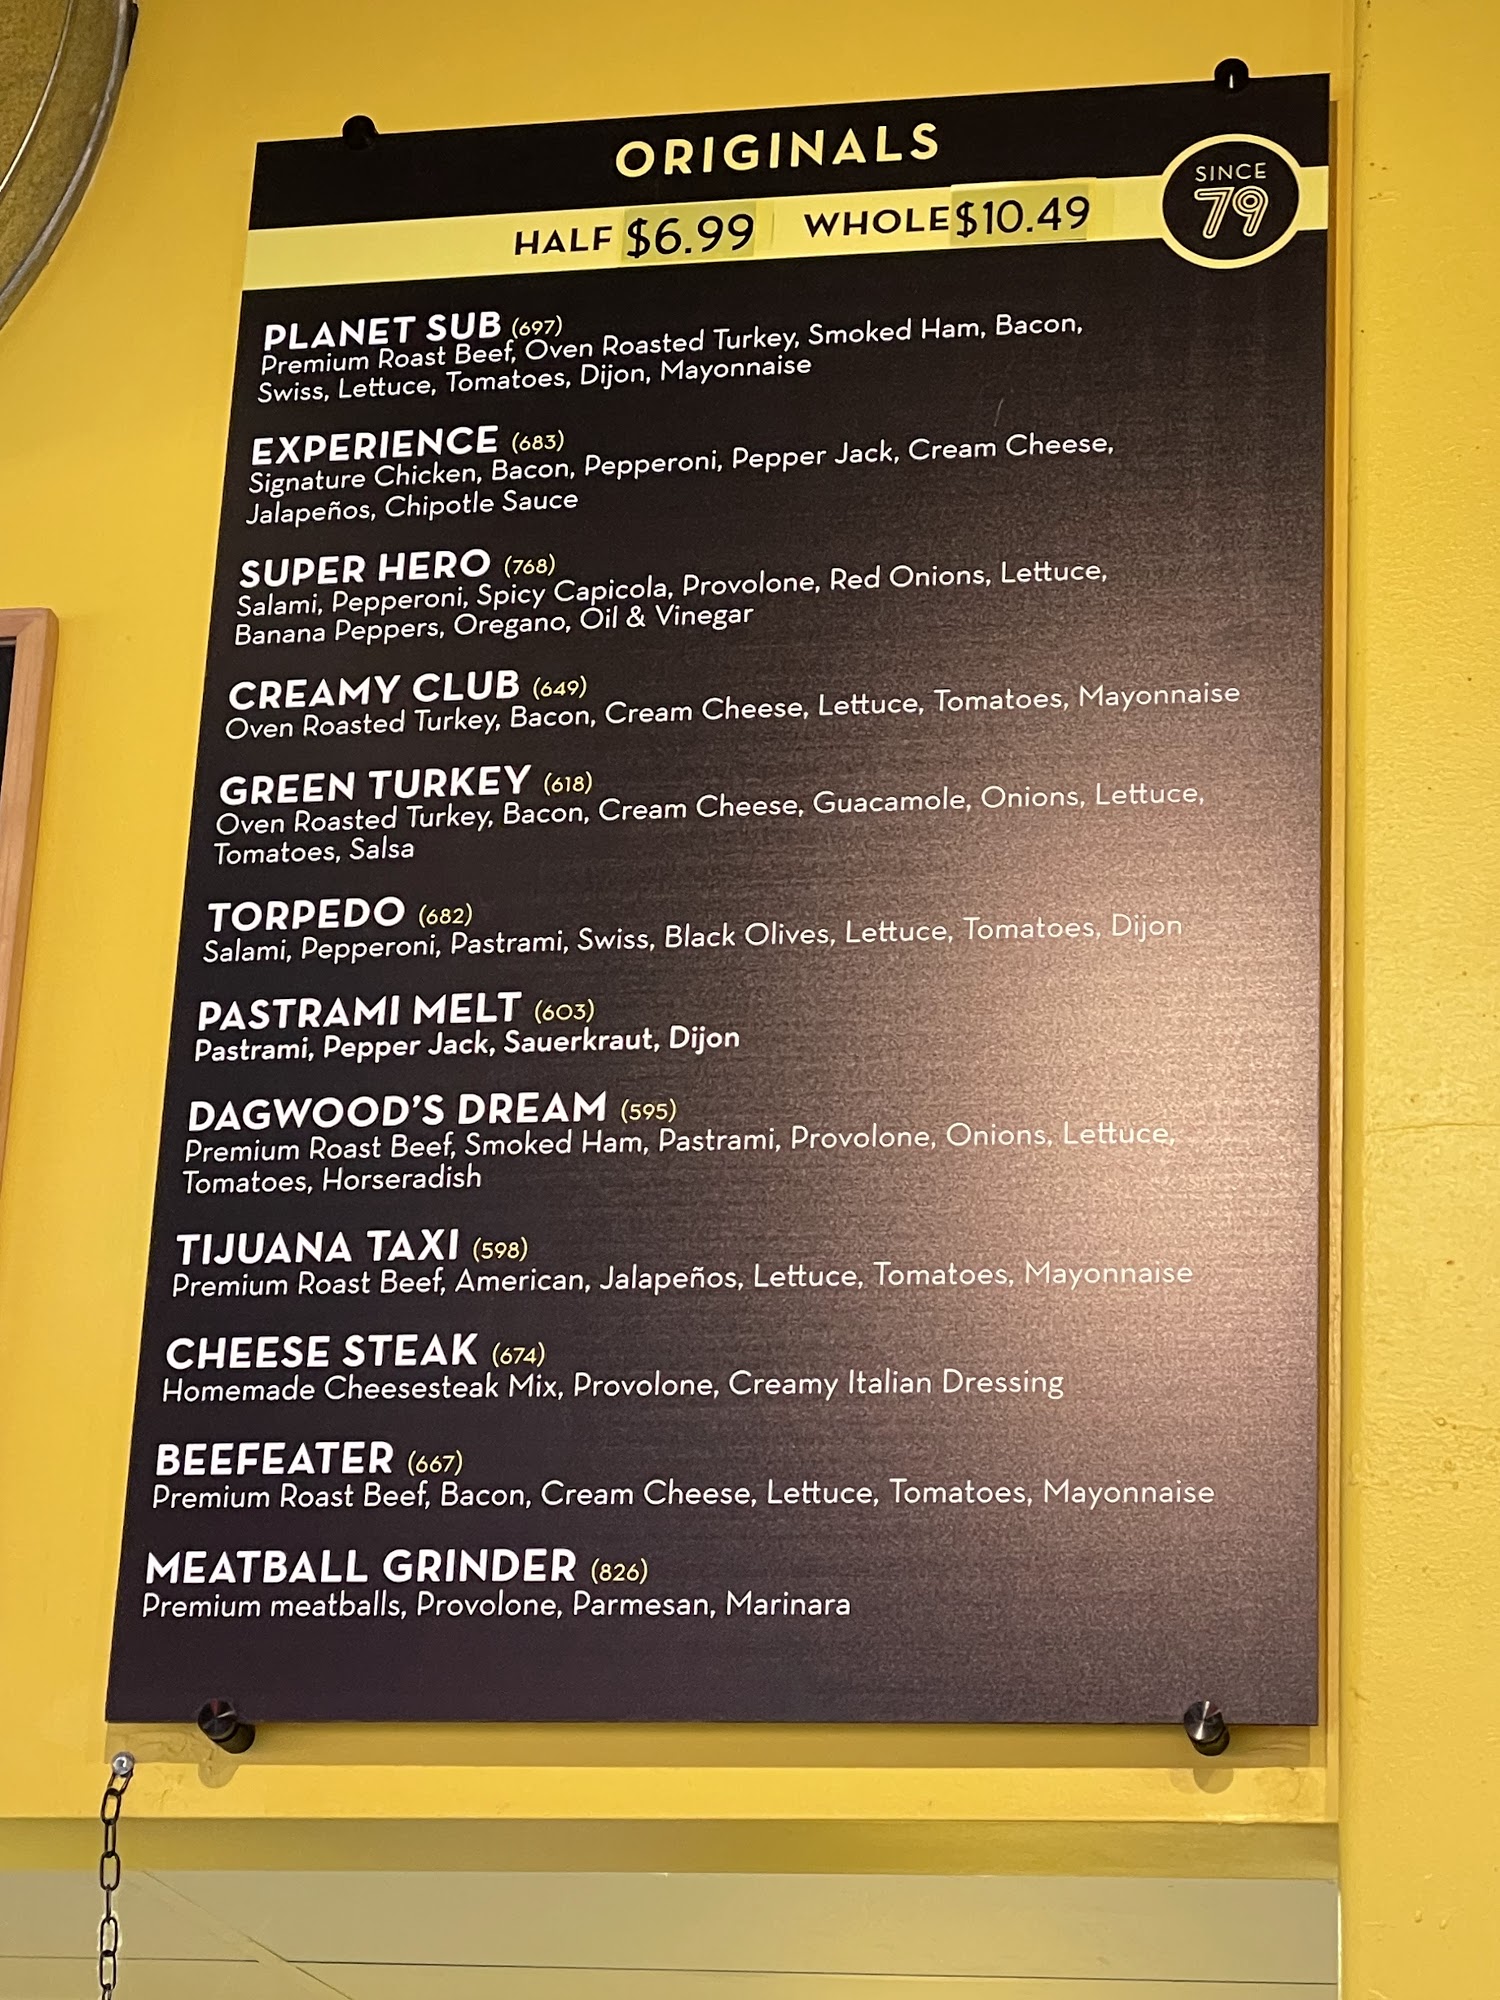 ORIGINALS
HALF $6.99 WHOLE $10.49
SINCE
79
PLANET SUB (697)
Premium Roast Beef, Oven Roasted Turkey, Smoked Ham, Bacon,
Swiss, Lettuce, Tomatoes, Dijon, Mayonnaise
EXPERIENCE (683)
Signature Chicken, Bacon, Pepperoni, Pepper Jack, Cream Cheese,
Jalapeños, Chipotle Sauce
SUPER HERO (768)
Salami, Pepperoni, Spicy Capicola, Provolone, Red Onions, Lettuce,
Banana Peppers, Oregano, Oil & Vinegar
CREAMY CLUB (649)
Oven Roasted Turkey, Bacon, Cream Cheese, Lettuce, Tomatoes, Mayonnaise
GREEN TURKEY (618)
Oven Roasted Turkey, Bacon, Cream Cheese, Guacamole, Onions, Lettuce,
Tomatoes, Salsa
TORPEDO (682)
Salami, Pepperoni, Pastrami, Swiss, Black Olives, Lettuce, Tomatoes, Dijon
PASTRAMI MELT (603)
Pastrami, Pepper Jack, Sauerkraut, Dijon
DAGWOOD'S DREAM (595)
Premium Roast Beef, Smoked Ham, Pastrami, Provolone, Onions, Lettuce,
Tomatoes, Horseradish
TIJUANA TAXI (598)
Premium Roast Beef, American, Jalapeños, Lettuce, Tomatoes, Mayonnaise
CHEESE STEAK (674)
Homemade Cheesesteak Mix, Provolone, Creamy Italian Dressing
BEEFEATER (667)
Premium Roast Beef, Bacon, Cream Cheese, Lettuce, Tomatoes, Mayonnaise
MEATBALL GRINDER (826)
Premium meatballs, Provolone, Parmesan, Marinara